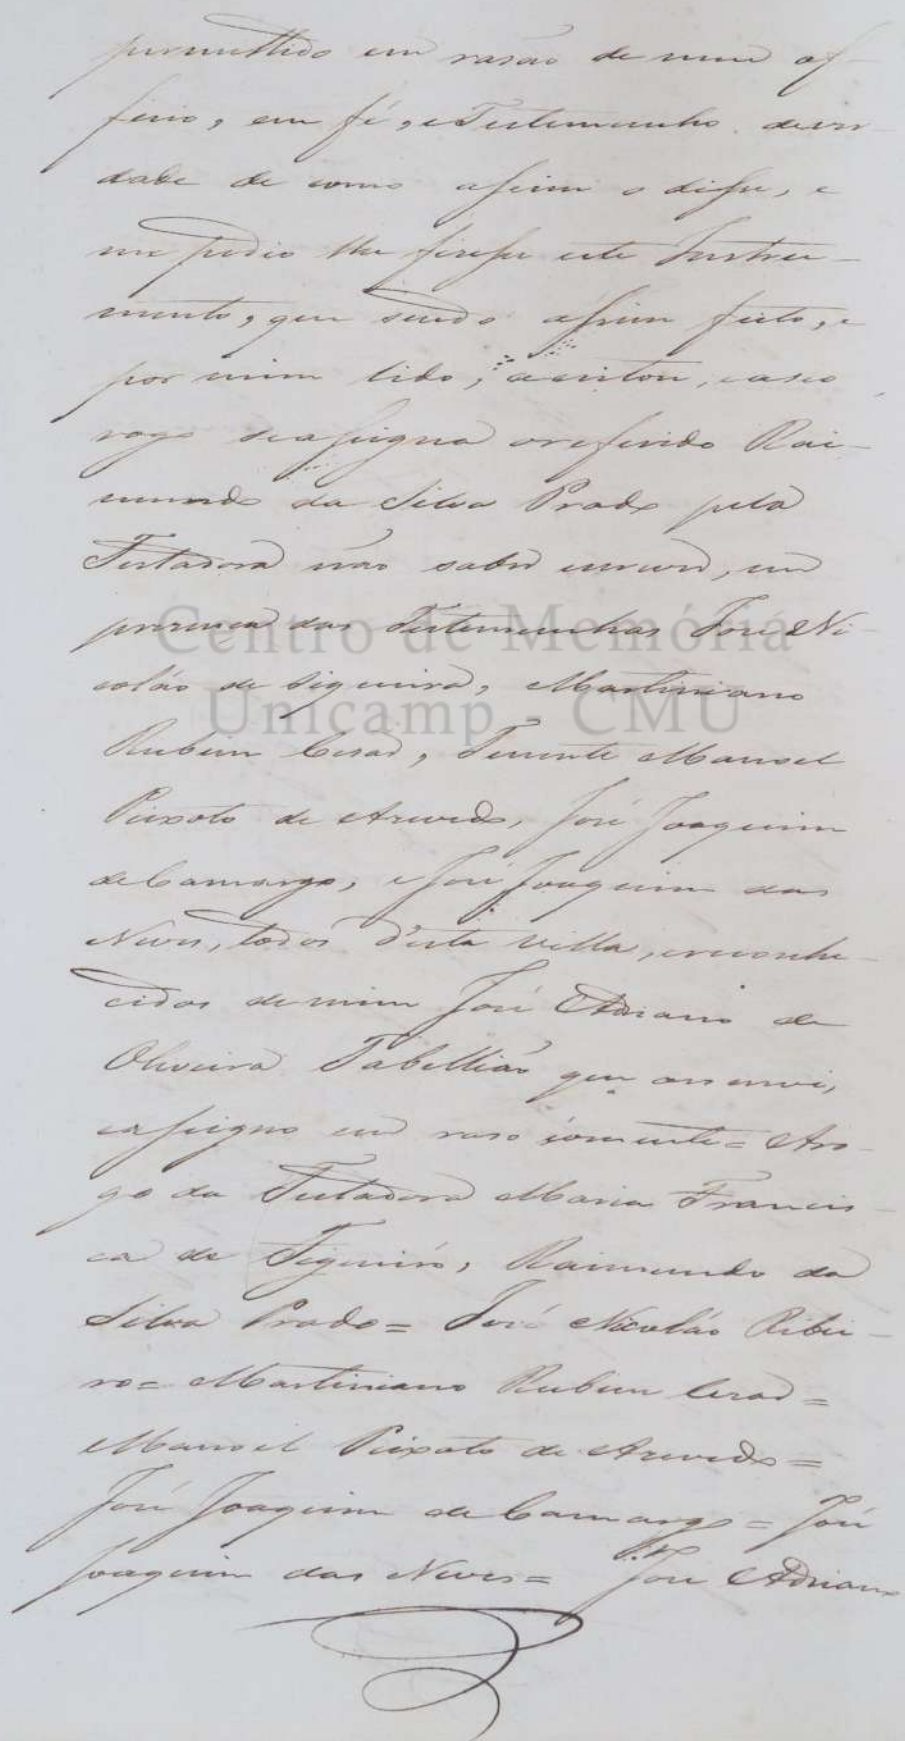 permettido em rasão de meu of-
ficio, em fé, e Testemunho dever-
dade de como assim o disse, e
me pedio lhe fizesse este Instru-
mento, que sendo assim feito, e
por mim lido, aceitou, e a seo
rogo se assigna o referido Rai-
mundo da Silva Prado pela
Testadora não saber escrever, em
presença das Testemunhas José Ni-
coláo de Siqueira, Martiniano
Rubim Cesar, Tenente Manoel
Peixoto de Azevedo, José Joaquim
de Camargo, e José Joaquim das
Neves, todos d'esta villa, ereconhe-
cidos de mim José Adriano de
Oliveira Tabellião que o escrevi,
e assigno em raso somente = Aro-
go da Testadora Maria Francis-
ca de Siqueira, Raimundo da
Silva Prado = José Nicoláo Ribei-
ro = Martiniano Rubim Cesar =
Manoel Peixoto de Azevedo =
José Joaquim de Camargo = José
Joaquim das Neves = José Adriano
Centro de Memória
Unicamp - CMU